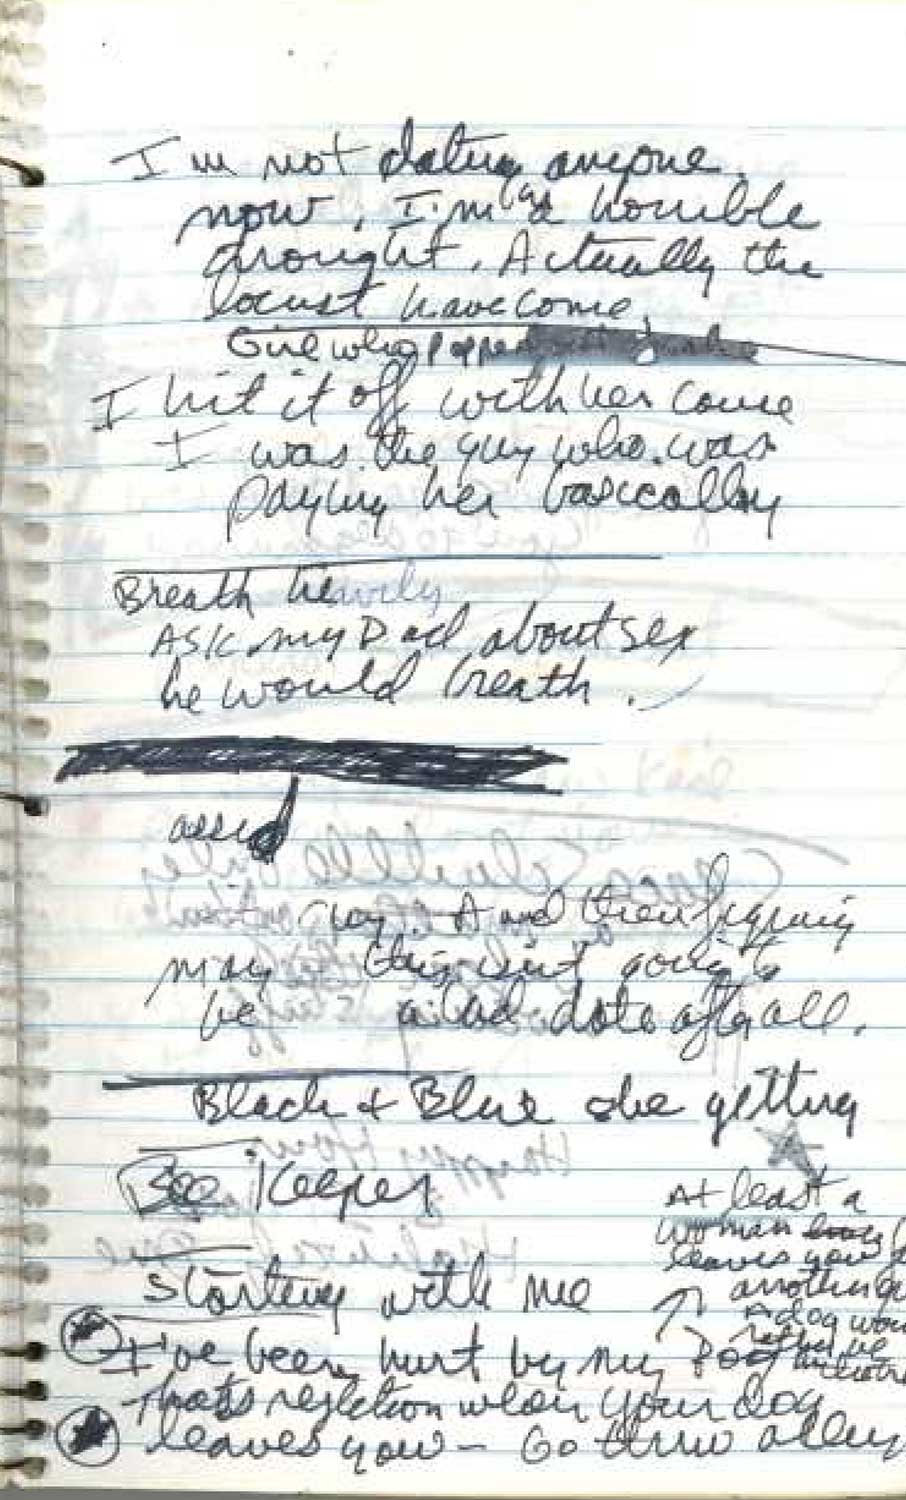 I'm not dating anyone
now, I'm in a horrible
drought. Actually the
locust have come
Girl who popped
I hit it off with her cause
I was the guy who was
paying her basically
Breath heavily
Ask my Dad about sex
he would breath.
And then figuring
may this isn't going to
be a bad date after all.
Black & Blue she getting
Bee Keeper
Starting with me
At least a
woman
leaves you
another
A dog
rather be
I've been hurt by my Dog
That's rejection when your dog
leaves you - Go thru alley